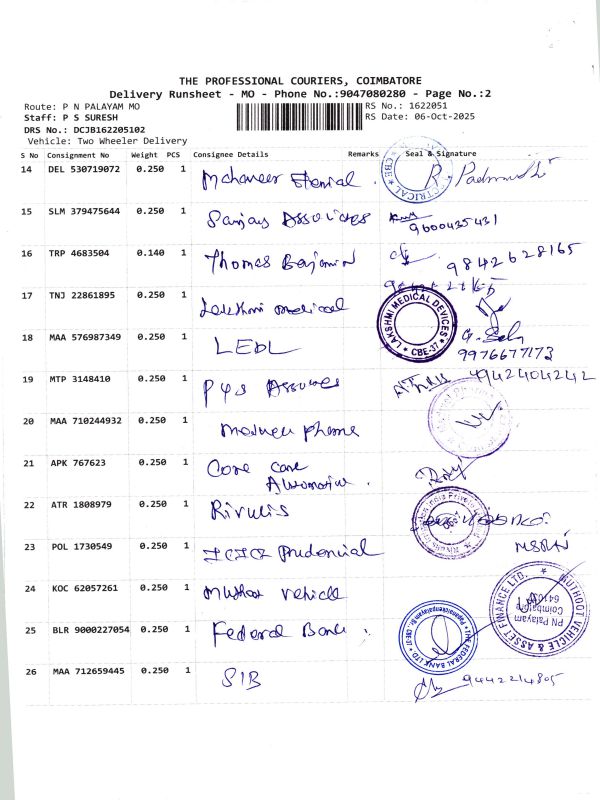 THE PROFESSIONAL COURIERS, COIMBATORE
Delivery Runsheet - MO - Phone No.:9047080280 - Page No.:2
Route: P N PALAYAM MO
RS No.: 1622051
Staff: P S SURESH
RS Date: 06-Oct-2025
DRS No.: DCJB162205102
Vehicle: Two Wheeler Delivery
S No Consignment No Weight PCS Consignee Details Remarks Seal & Signature
14 DEL 530719072 0.250 1
CBE ELECTRICAL
15 SLM 379475644 0.250 1 Sanjay Associates
9600435431
16 TRP 4683504 0.140 1 Thomas Benjamin 9842628165
17 TNJ 22861895 0.250 1 Lakshmi medical
LAKSHMI MEDICAL DEVICES * CBE-37 *
18 MAA 576987349 0.250 1 LEDL
9976677173
19 MTP 3148410 0.250 1 9442404242
20 MAA 710244932 0.250 1
21 APK 767623 0.250 1 Core care
Automotive.
22 ATR 1808979 0.250 1 Rivulis
23 POL 1730549 0.250 1 ICICI Prudencial
24 KOC 62057261 0.250 1 Muthoot Vehicle
MUTHOOT VEHICLE & ASSET FINANCE LTD.
PN Palayam
Coimbatore
25 BLR 9000227054 0.250 1 Federal Bank
THE FEDERAL BANK LTD
26 MAA 712659445 0.250 1 SIB
9442214805